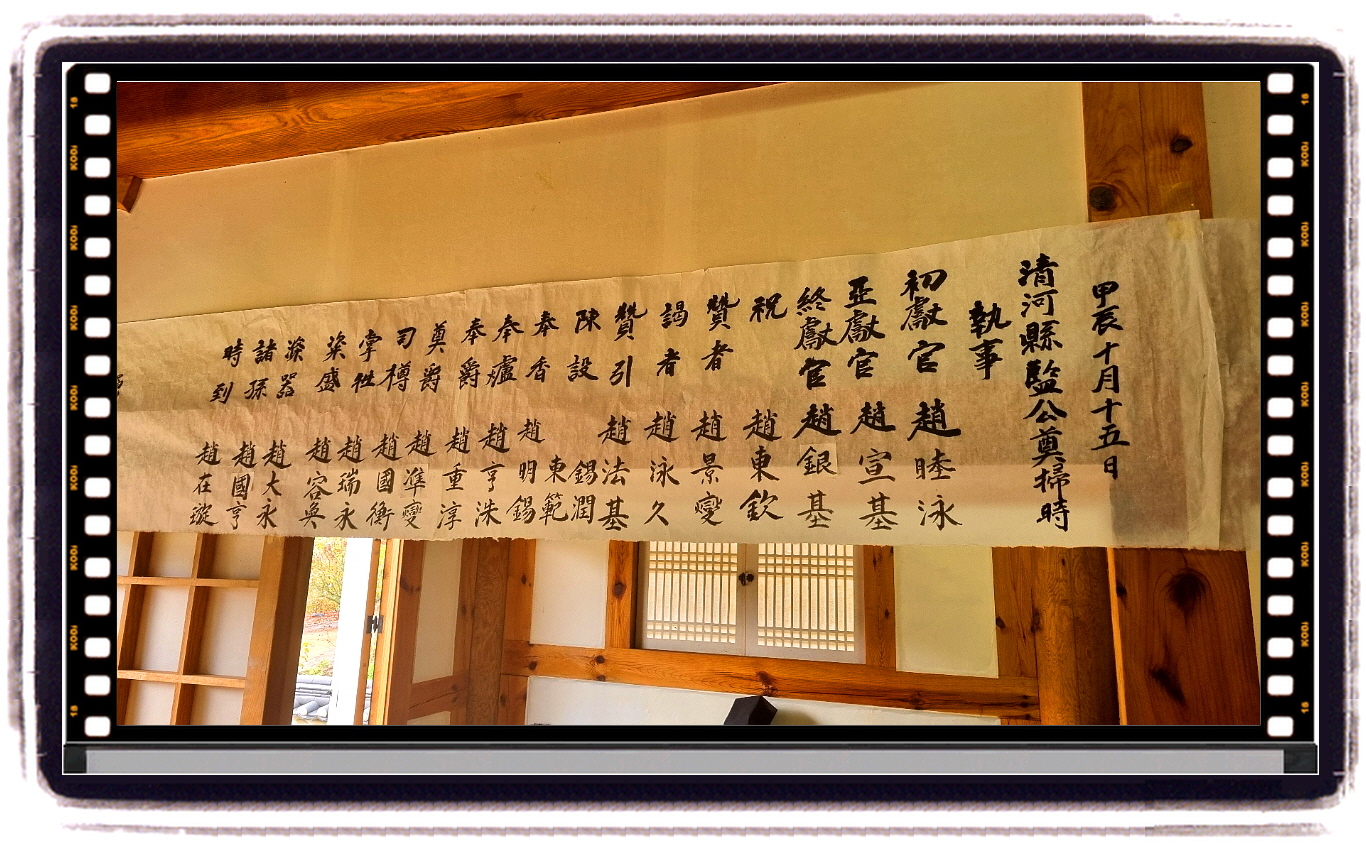 甲辰十月十五日
清河縣監公奠掃時
執事
初獻官 趙睦泳
亞獻官 趙宣基
終獻官 趙銀基
祝 趙東欽
贊者 趙景燮
謁者 趙泳久
贊引 趙法基
陳設 錫潤
東範
奉香 趙明錫
奉爐 趙亨洙
奉爵 趙重淳
奠爵 趙準燮
司樽 趙國衡
掌牲 趙瑞永
粢盛 趙容奐
滌器 趙大永
諸孫 趙國亨
時到 趙在璇